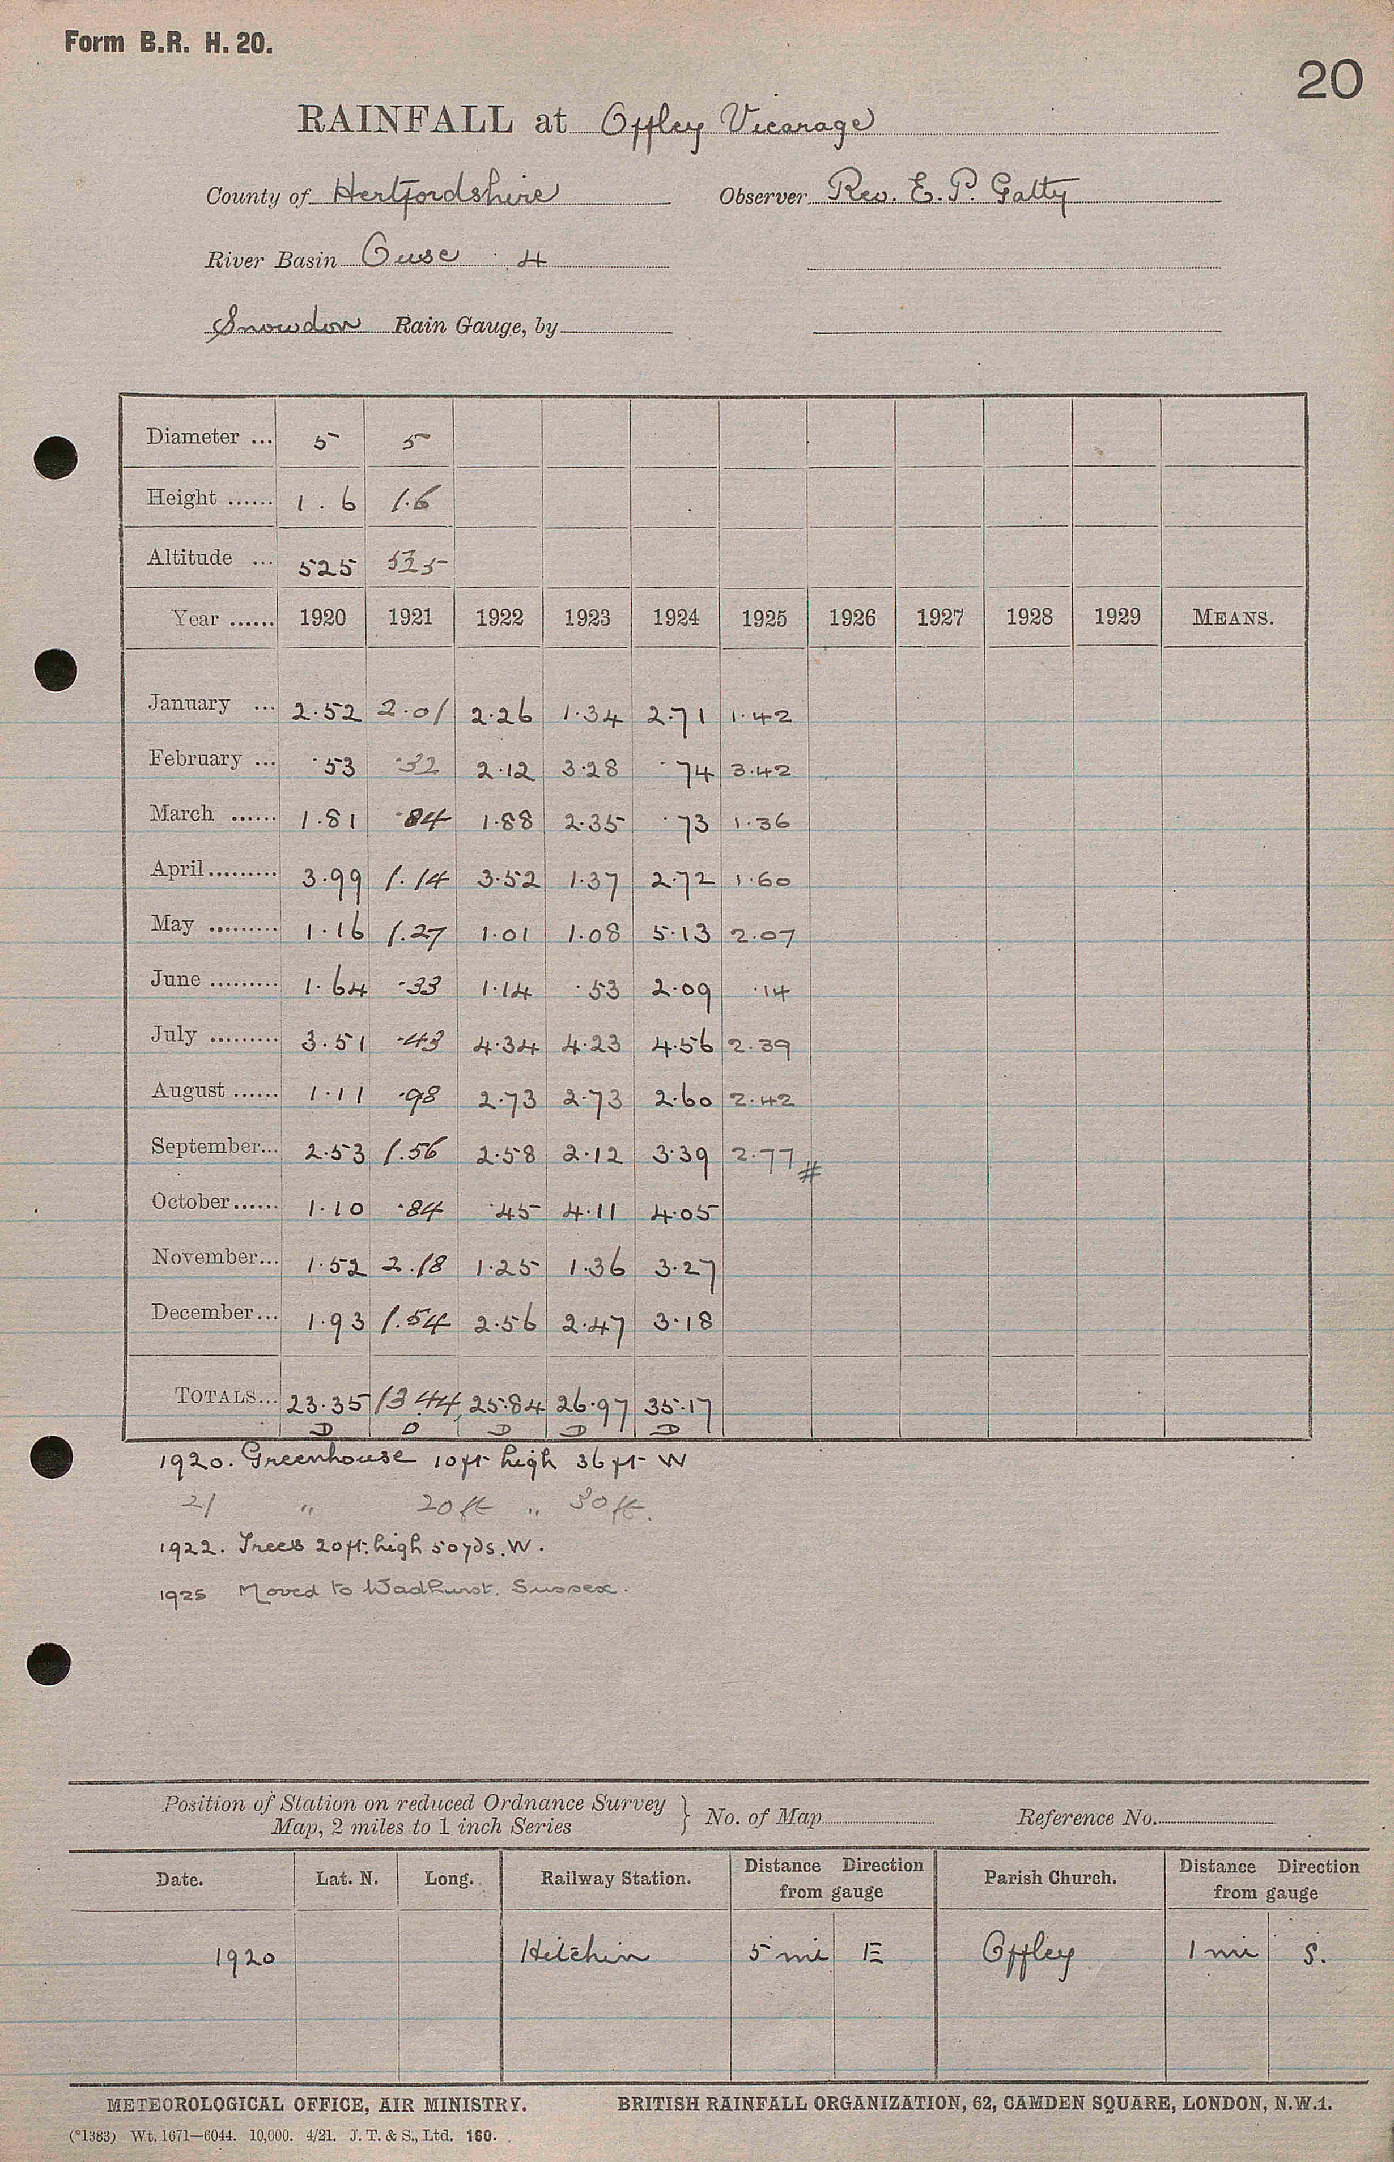 Form B.R. H. 20.
20
RAINFALL at Offley Vicarage
County of Hertfordshire Observer Rev. E. P. Gatty
River Basin Ouse 4
Snowdon Rain Gauge, by
Diameter ... 5 5
Height ...... 1.6 1.6
Altitude ... 525 525
Year ...... 1920 1921 1922 1923 1924 1925 1926 1927 1928 1929 MEANS.
January ... 2.52 2.01 2.26 1.34 2.71 1.42
February ... .53 .32 2.12 3.28 .74 3.42
March ...... 1.81 .84 1.88 2.35 .73 1.36
April......... 3.99 1.14 3.52 1.37 2.72 1.60
May ......... 1.16 1.27 1.01 1.08 5.13 2.07
June ......... 1.64 .33 1.14 .53 2.09 .14
July ......... 3.51 .43 4.34 4.23 4.56 2.39
August ...... 1.11 .98 2.73 2.73 2.60 2.42
September... 2.53 1.56 2.58 2.12 3.39 2.77 #
October...... 1.10 .84 .45 4.11 4.05
November... 1.52 2.18 1.25 1.36 3.27
December... 1.93 1.54 2.56 2.47 3.18
TOTALS... 23.35 13.44 25.84 26.97 35.17
D D D D D
1920. Greenhouse 10ft high 36 ft W
21 " 20 ft " 30 ft.
1922. Trees 20ft. high 50 yds. W.
1925 Moved to Wadhurst. Sussex.
Position of Station on reduced Ordnance Survey
Map, 2 miles to 1 inch Series } No. of Map Reference No.
Date. Lat. N. Long. Railway Station. Distance Direction from gauge Parish Church. Distance Direction from gauge
1920 Hitchin 5 mi E Offley 1 mi S.
METEOROLOGICAL OFFICE, AIR MINISTRY. BRITISH RAINFALL ORGANIZATION, 62, CAMDEN SQUARE, LONDON, N.W.1.
(*1383) Wt. 1671—6044. 10,000. 4/21. J. T. & S., Ltd. 160.